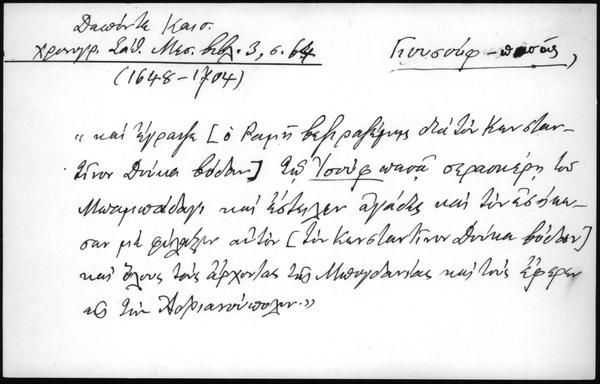 Δαπόντε Καισ.
χρονογρ. Σάθ. Μεσ. βιβλ. 3, σ. 64
Γιουσούφ-πασάς,
(1648-1704)
"καὶ ἔγραψε [ὁ Ραμῆ διὰ τὸν Κωνσταν-
τῖνον Δούκα βόδαν] τῷ Ἰσούφ πασᾶ σερασκέρη τοῦ
καὶ ἔστειλεν ἀγάδες καὶ τὸν ἐσήκω-
σαν μὲ φύλαξιν αὐτὸν [τὸν Κωνσταντῖνον Δούκα βόδαν]
καὶ ὅλους τοὺς ἄρχοντας τῆς Μπογδανίας καὶ τοὺς ἔφερεν
εἰς τὴν Ἀδριανούπολιν."